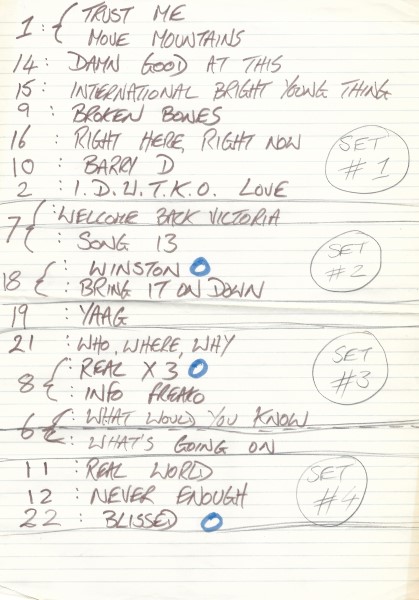 1: { TRUST ME
MOVE MOUNTAINS
14: DAMN GOOD AT THIS
15: INTERNATIONAL BRIGHT YOUNG THING
9: BROKEN BONES
16: RIGHT HERE, RIGHT NOW
SET #1
10: BARRY D
2: I.D.U.T.K.O. LOVE
7 { : WELCOME BACK VICTORIA
: SONG 13
SET #2
18 { : WINSTON O
: BRING IT ON DOWN
19: YAAG
21: WHO, WHERE, WHY
SET #3
8 { : REAL X 3 O
: INFO FREAKO
6 { : WHAT WOULD YOU KNOW
: WHAT'S GOING ON
11: REAL WORLD
SET #4
12: NEVER ENOUGH
22: BLISSED O